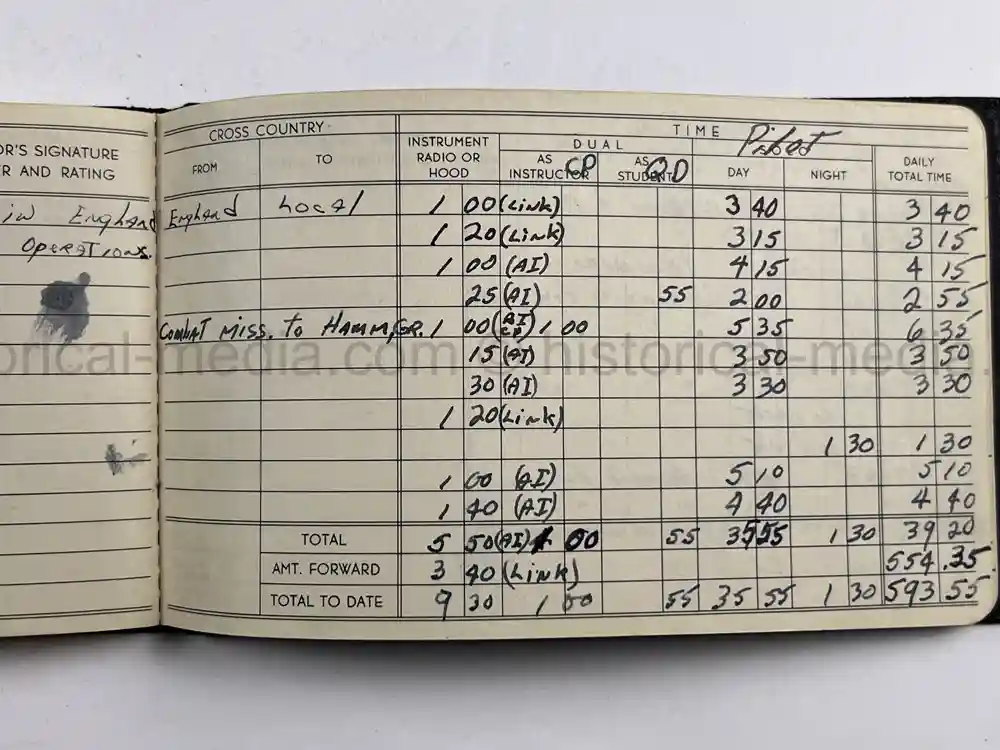 CROSS COUNTRY TIME Pilot
OR'S SIGNATURE R AND RATING FROM TO INSTRUMENT RADIO OR HOOD DUAL AS INSTRUCTOR CP AS STUDENT QD DAY NIGHT DAILY TOTAL TIME
in England England Local 1 00 (Link) 3 40 3 40
Operations. 1 20 (Link) 3 15 3 15
1 00 (AI) 4 15 4 15
25 (AI) 55 2 00 2 55
Combat Miss. to Hamm, GR. 1 00 (AI CP) 1 00 5 35 6 35
orical-media.com © historical-media.
15 (AI) 3 50 3 50
30 (AI) 3 30 3 30
1 20 (Link)
1 30 1 30
1 00 (AI) 5 10 5 10
1 40 (AI) 4 40 4 40
TOTAL 5 50 (AI) 1 00 55 35 55 1 30 39 20
AMT. FORWARD 3 40 (Link) 554.35
TOTAL TO DATE 9 30 1 00 55 35 55 1 30 593 55